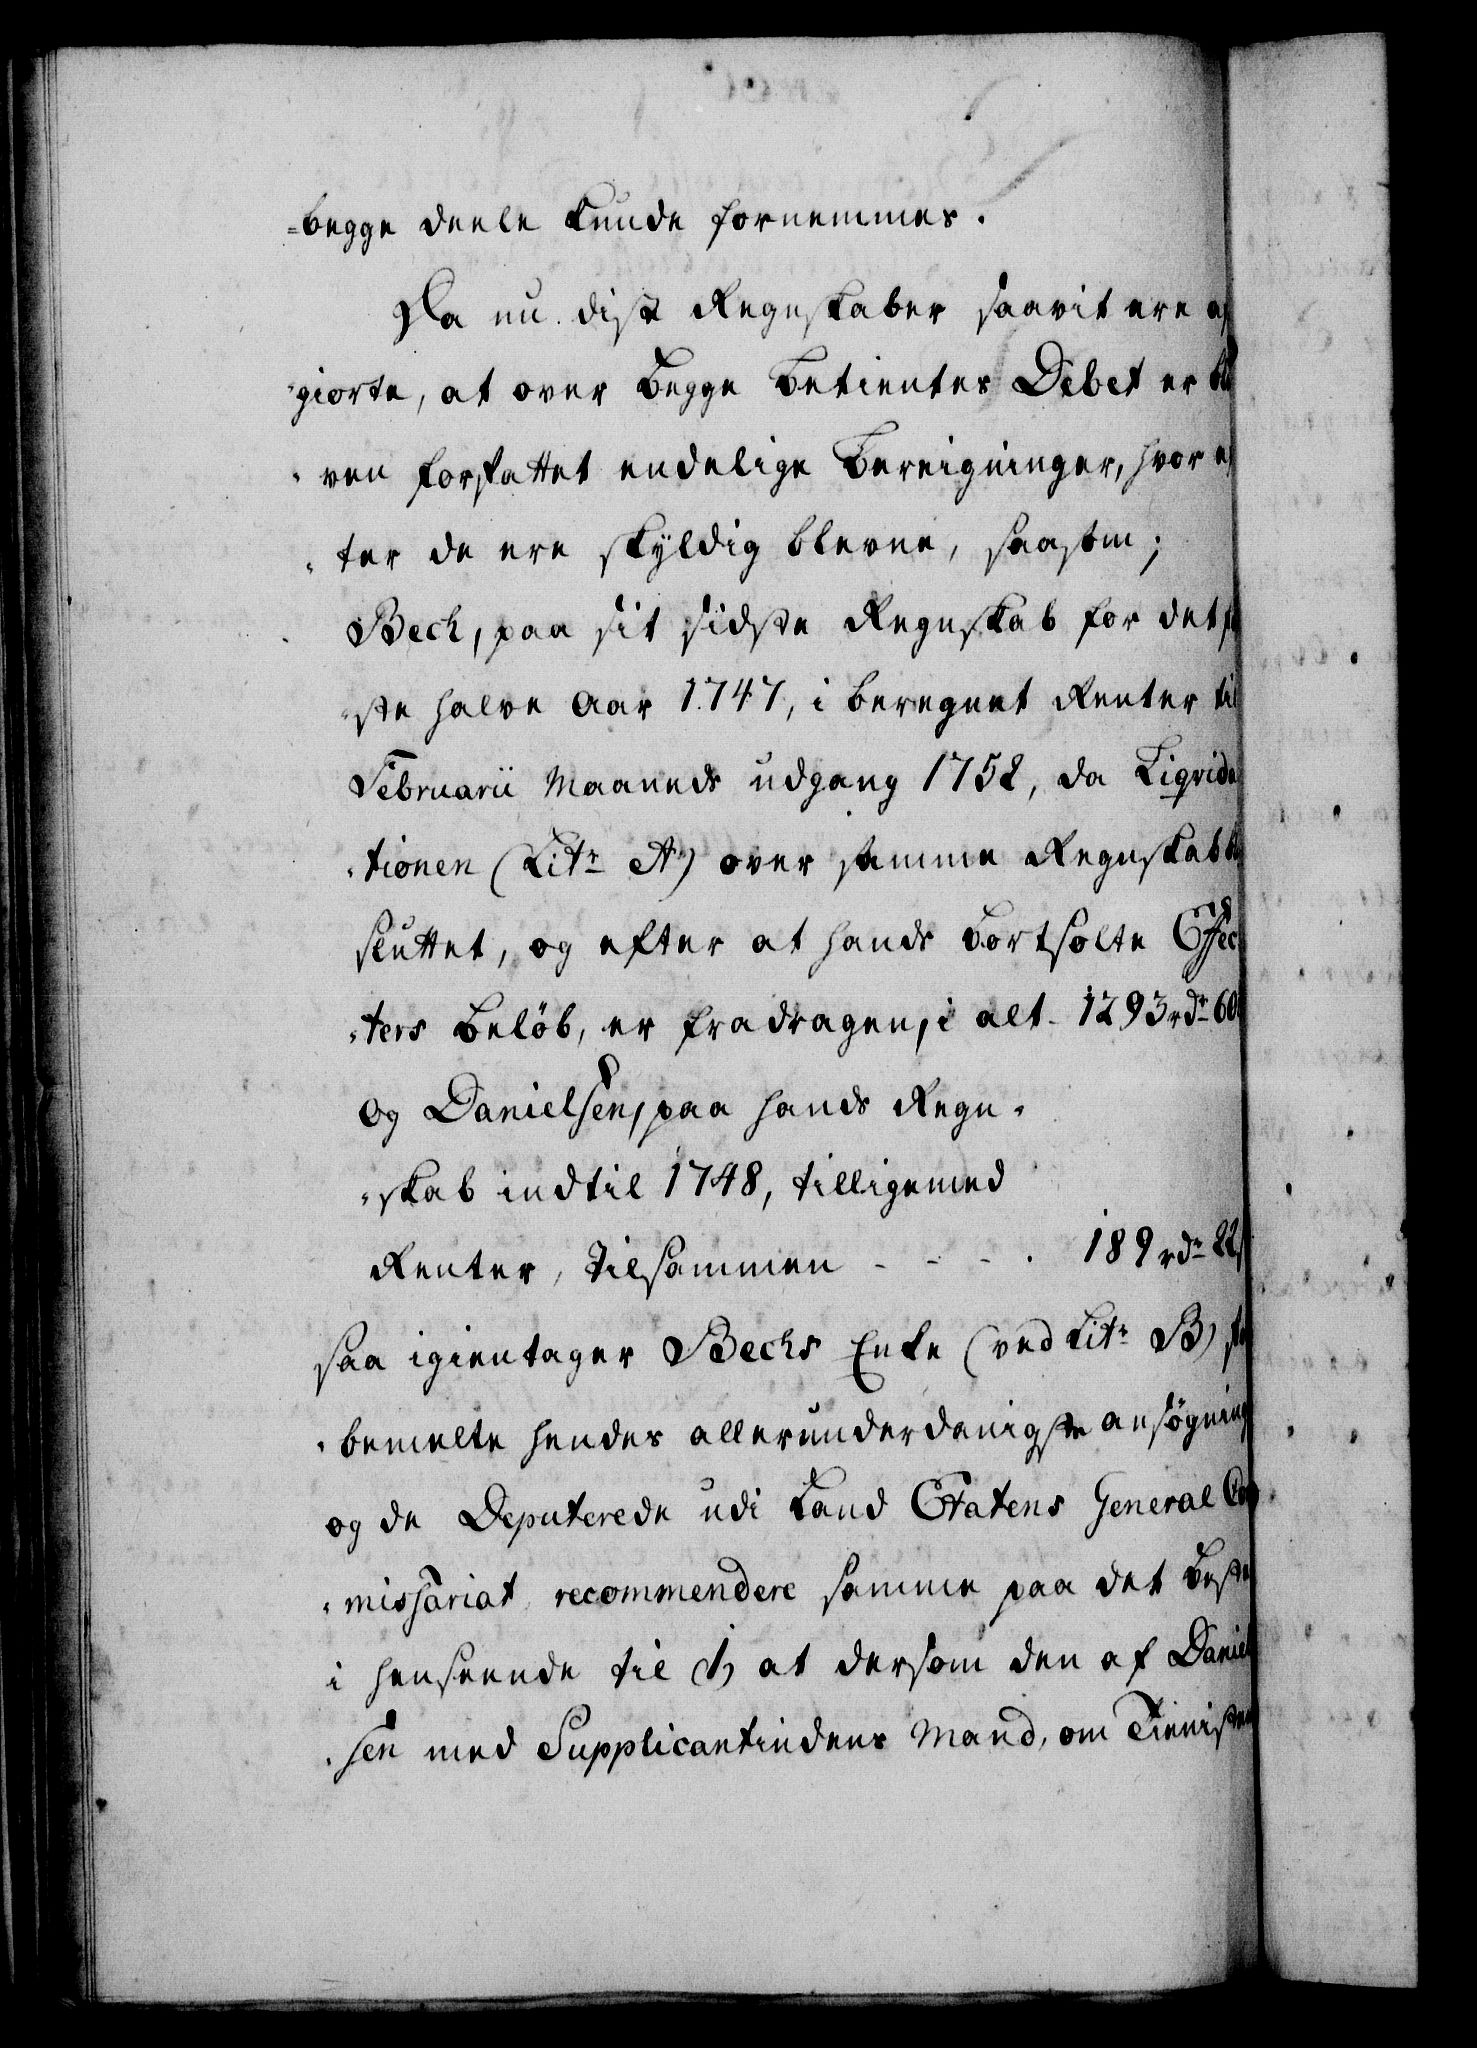 =begge deele kunde fornemmes.
Da nu disse Regnskaber saavit ere af
-giorte, at over begge betientes Debet er ble
-ven forfattet endelige Bereigninger, hvor ef
-ter de ere skyldig blevne, saasom;
Bech, paa sit sidste Regnskab for det
-ste halve Aar 1747, i beregnet Renter til
Februarii Maaneds udgang 1752, da Liqvida
-tionen (Litr A) over samme Regnskab
sluttet, og efter at hands bortsolte Effec
-ters Beløb, er fradragen, i alt - 1293 rdr 60
Og Danielsen, paa hands Regn-
-skab indtil 1748, tilligemed
Renter, tilsammen - - - . 189 rdr 22
saa igientager Bechs Enke (ved Litr B)
-bemelte hendes allerunderdanigste ansøgning
og de Deputerede udi Land Etatens General Com
-missariat recommendere samme paa det beste
i henseende til 1) at dersom den af Daniel
-sen med Supplicantindens Mand, om Tienisten